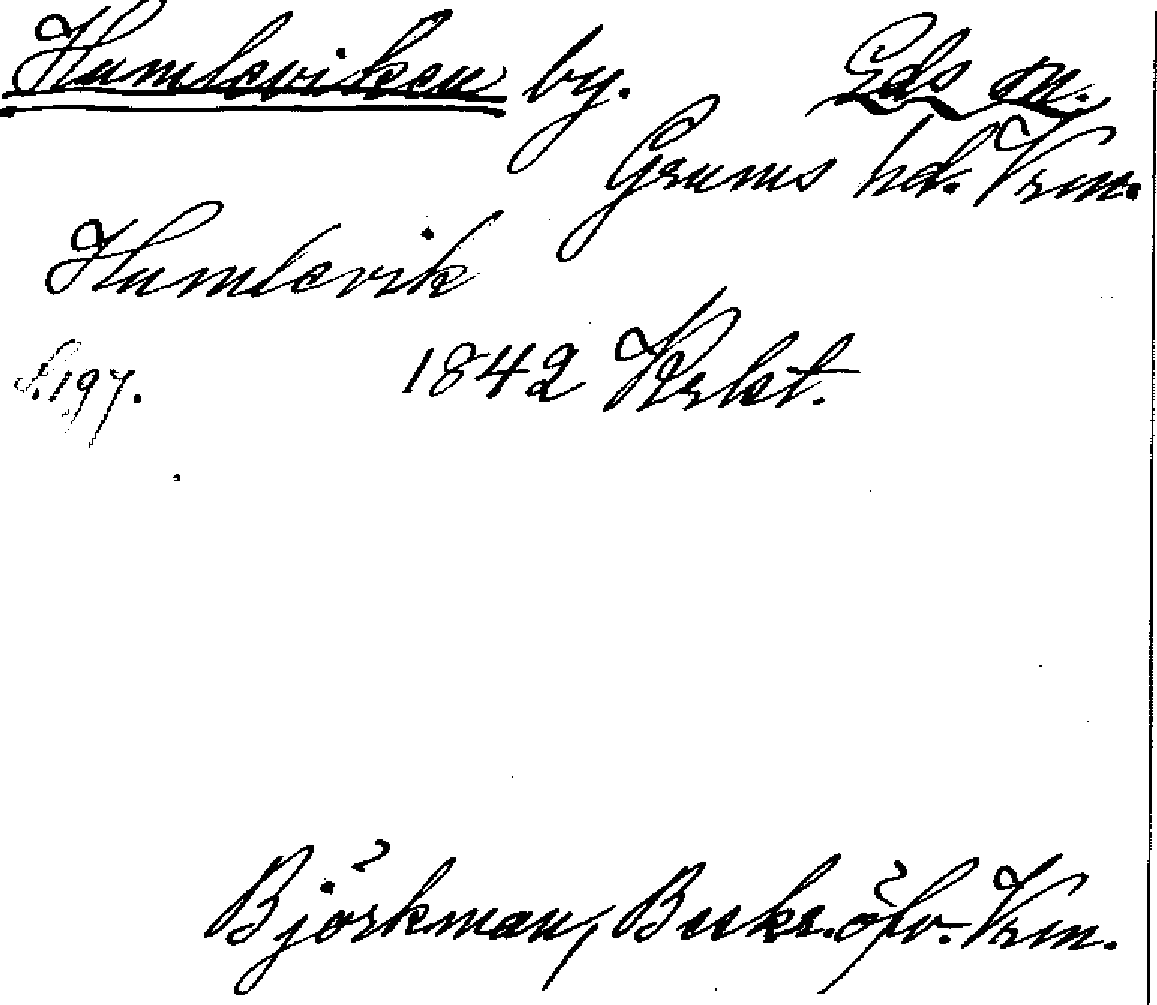 Humleviken by. Eds sn.
Grums hd. Vrm.
Humlevik
S. 197. 1842 Krkt.
Björkman, Beskr. öfv. Vrm.